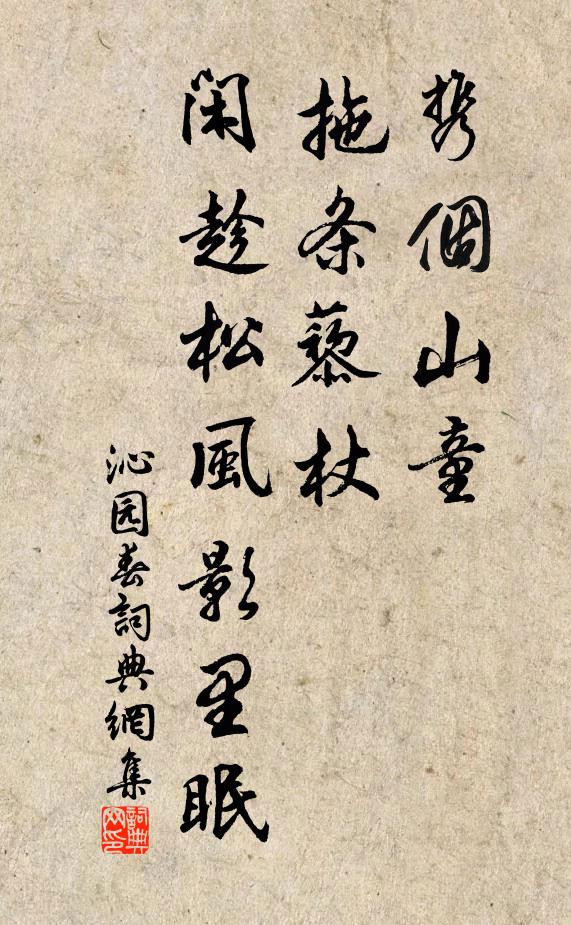 携個山童
拖条藜杖
閑趁松風影里眠
沁园春詞典網集
詞典网印